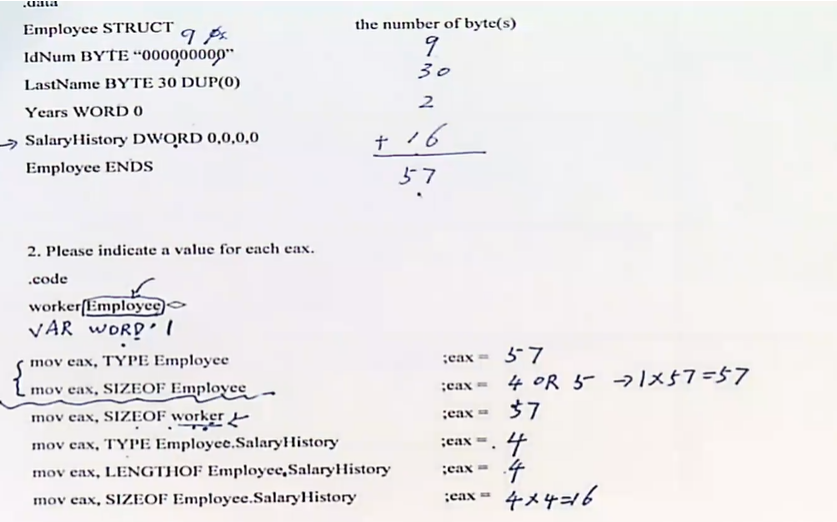 .data
Employee STRUCT 9 the number of byte(s)
IdNum BYTE “000000000” 9
LastName BYTE 30 DUP(0) 30
Years WORD 0 2
→ SalaryHistory DWORD 0,0,0,0 + 16
Employee ENDS 57
2. Please indicate a value for each eax.
.code
worker Employee <>
VAR WORD 1
mov eax, TYPE Employee ;eax = 57
mov eax, SIZEOF Employee ;eax = 4 OR 5 → 1×57=57
mov eax, SIZEOF worker ;eax = 57
mov eax, TYPE Employee.SalaryHistory ;eax = 4
mov eax, LENGTHOF Employee.SalaryHistory ;eax = 4
mov eax, SIZEOF Employee.SalaryHistory ;eax = 4×4=16